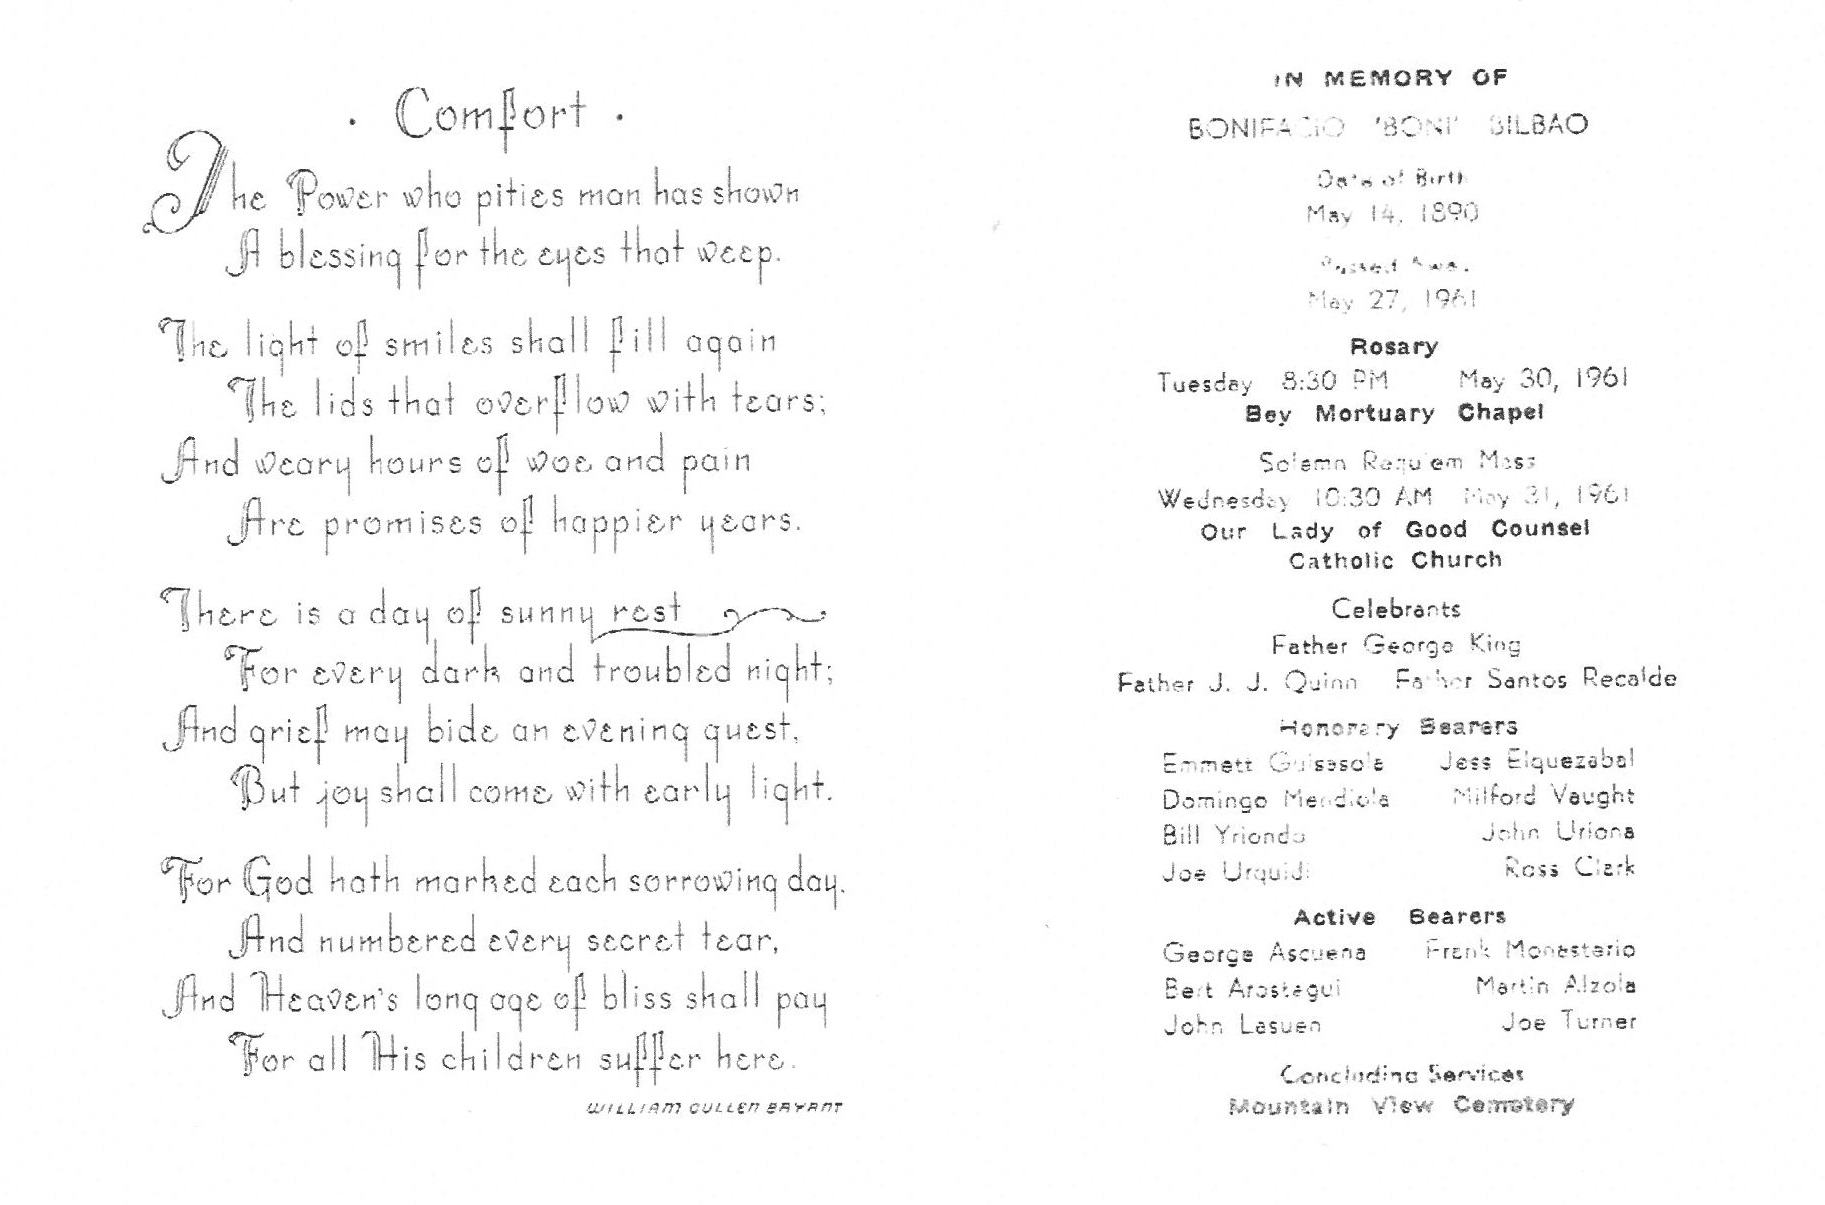 · Comfort ·
The Power who pities man has shown
A blessing for the eyes that weep.
The light of smiles shall fill again
The lids that overflow with tears;
And weary hours of woe and pain
Are promises of happier years.
There is a day of sunny rest
For every dark and troubled night;
And grief may bide an evening guest,
But joy shall come with early light.
For God hath marked each sorrowing day,
And numbered every secret tear,
And Heaven's long age of bliss shall pay
For all His children suffer here.
WILLIAM CULLEN BRYANT
IN MEMORY OF
BONIFACIO 'BONI' BILBAO
Date of Birth
May 14, 1890
Passed Away
May 27, 1961
Rosary
Tuesday 8:30 PM May 30, 1961
Bey Mortuary Chapel
Solemn Requiem Mass
Wednesday 10:30 AM May 31, 1961
Our Lady of Good Counsel
Catholic Church
Celebrants
Father George King
Father J. J. Quinn Father Santos Recalde
Honorary Bearers
Emmett Guisasola Jess Elquezabal
Domingo Mendiola Milford Vaught
Bill Yriondo John Uriona
Joe Urquidi Ross Clark
Active Bearers
George Ascuena Frank Monasterio
Bert Arostegui Martin Alzola
John Lasuen Joe Turner
Concluding Services
Mountain View Cemetery